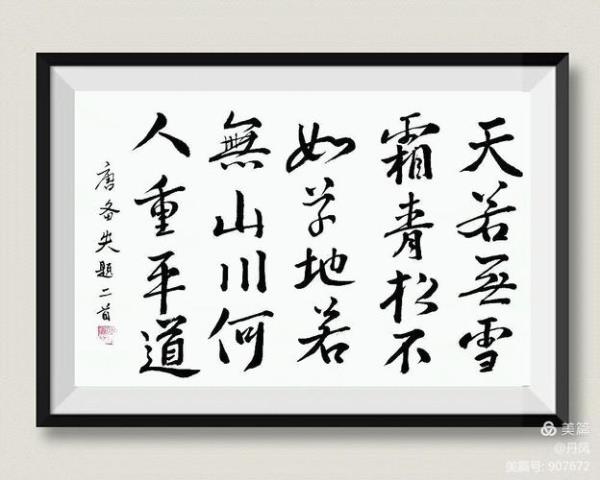 天若无雪
霜青松不
如草地若
無山川何
人重平道
唐备失题二首
美篇
@丹凤
美篇号: 907672